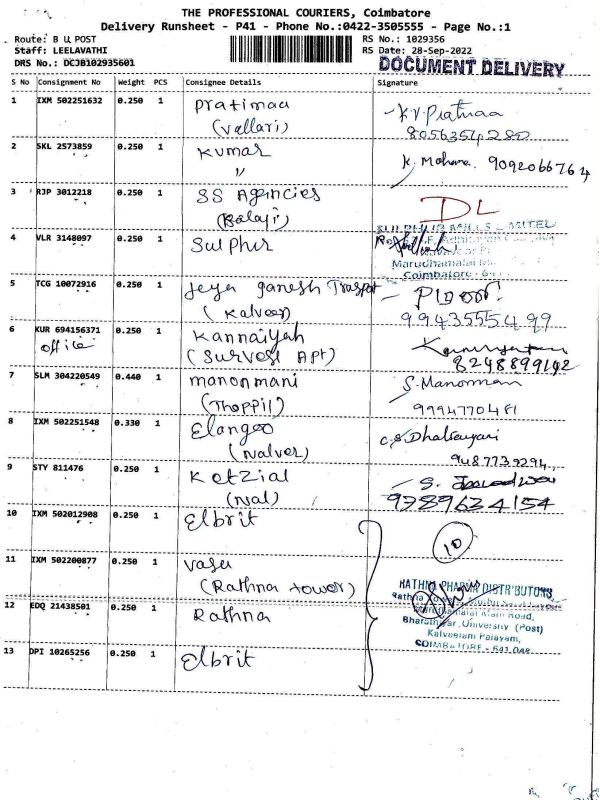 THE PROFESSIONAL COURIERS, Coimbatore
Delivery Runsheet - P41 - Phone No.:0422-3505555 - Page No.:1
Route: B U POST
RS No.: 1029356
Staff: LEELAVATHI
RS Date: 28-Sep-2022
DRS No.: DCJB102935601
DOCUMENT DELIVERY
S No Consignment No Weight PCS Consignee Details Signature
1 IXM 502251632 0.250 1 Pratimaa
(Vallari)
8056354280
2 SKL 2573859 0.250 1 Kumar K. Mohana 9092066764
"
3 RJP 3012218 0.250 1 SS Agencies DL
(Balaji)
4 VLR 3148097 0.250 1 Sulphur
SULPHUR MILLS LIMITED
Marudhamalai
Coimbatore
5 TCG 10072916 0.250 1 Jeya Ganesh
(Kalveer)
9943555499
6 KUR 694156371 0.250 1 Kannaiyah
office
(Survest Apt) 8248899142
7 SLM 304220549 0.440 1 manonmani S. Manonmani
(Thoppil) 9994770481
8 IXM 502251548 0.330 1 Elangoo
(nalver) 9487739294
9 STY 811476 0.250 1 Ketzial
(nal) 9789634154
10 IXM 502012908 0.250 1 Elbrit 10
11 IXM 502200877 0.250 1 Vasu
(Rathna tower)
RATHNA PHARMA DISTRIBUTORS
12 EDQ 21438501 0.250 1 Rathna
Main Road,
Bharathiyar University (Post)
Kalveeram Palayam,
COIMBATORE - 641 046
13 DPI 10265256 0.250 1 Elbrit